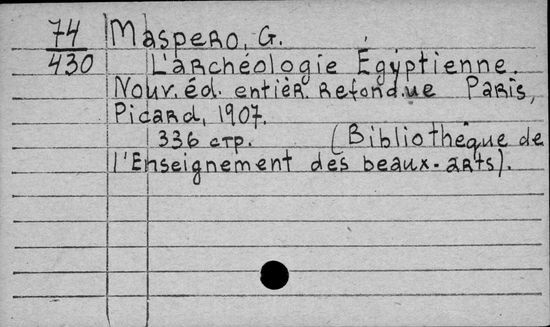 74
430
Maspero, G.
L'archéologie Égyptienne.
Nouv. éd. entièr. refondue Paris,
Picard, 1907.
336 стр. (Bibliothèque de
l'Enseignement des beaux-arts).